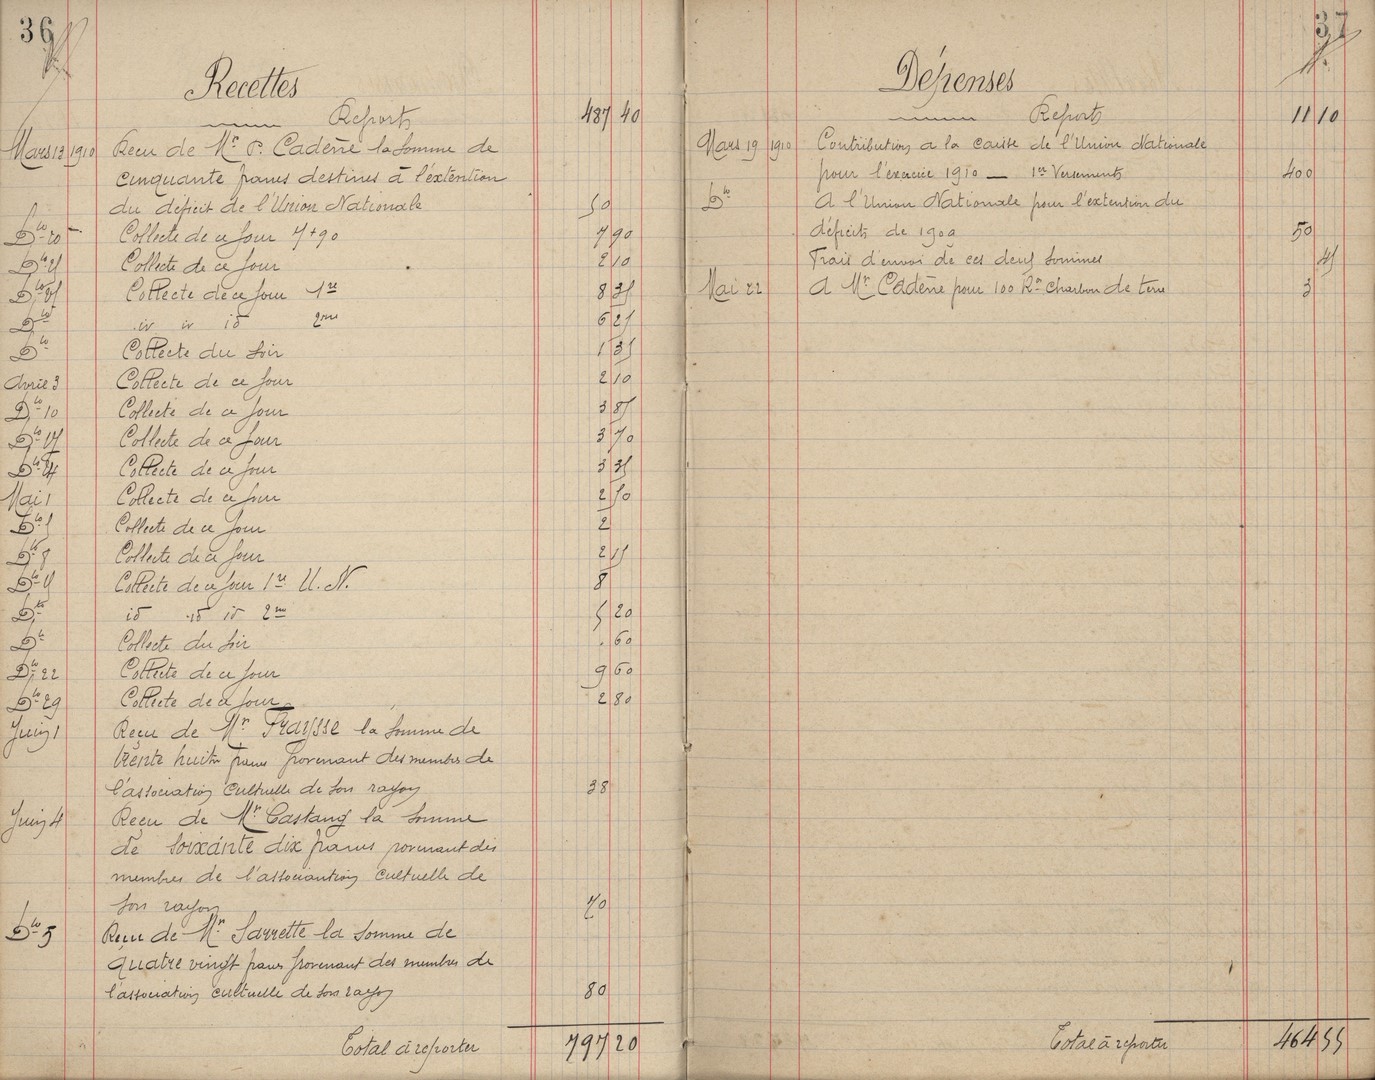 36
Recettes
Reports 487 40
Mars 13 1910 Reçu de Mr P. Cadène la somme de
cinquante francs destinés à l'éxtention
du déficit de l'Union Nationale 50
Dto 20 Collecte de ce jour 7+90 7 90
Dto 25 Collecte de ce jour 2 10
Dto 27 Collecte de ce jour 1re 8 35
Dto id id id 2me 6 25
Dto Collecte du soir 1 35
Avril 3 Collecte de ce jour 2 10
Dto 10 Collecte de ce jour 3 85
Dto 17 Collecte de ce jour 3 70
Dto 24 Collecte de ce jour 3 35
Mai 1 Collecte de ce jour 2 50
Dto 5 Collecte de ce jour 2
Dto 8 Collecte de ce jour 2 15
Dto 15 Collecte de ce jour 1re U. N. 8
Dto id id id 2me 5 20
Dto Collecte du soir . 60
Dto 22 Collecte de ce jour 9 60
Dto 29 Collecte de ce jour 2 80
Juin 1 Reçu de Mr Fraysse la somme de
trente huit francs provenant des membres de
l'association cultuelle de son rayon 38
Juin 4 Reçu de Mr Castang la somme
de soixante dix francs provenant des
membres de l'associantion cultuelle de
son rayon 70
Dto 5 Reçu de Mr Sarrette la somme de
quatre vingt francs provenant des membres de
l'association cultuelle de son rayon 80
Total à reporter 797 20
37
Dépenses
Reports 11 10
Mars 19 1910 Contribution a la caisse de l'Union Nationale
pour l'exercice 1910 — 1er Versements 400
Dto A l'Union Nationale pour l'extention du
déficits de 1909 50
Frais d'envoi de ces deux sommes 45
Mai 22 A Mr Cadène pour 100 Kos Charbon de terre 3
Total à reporter 464 55